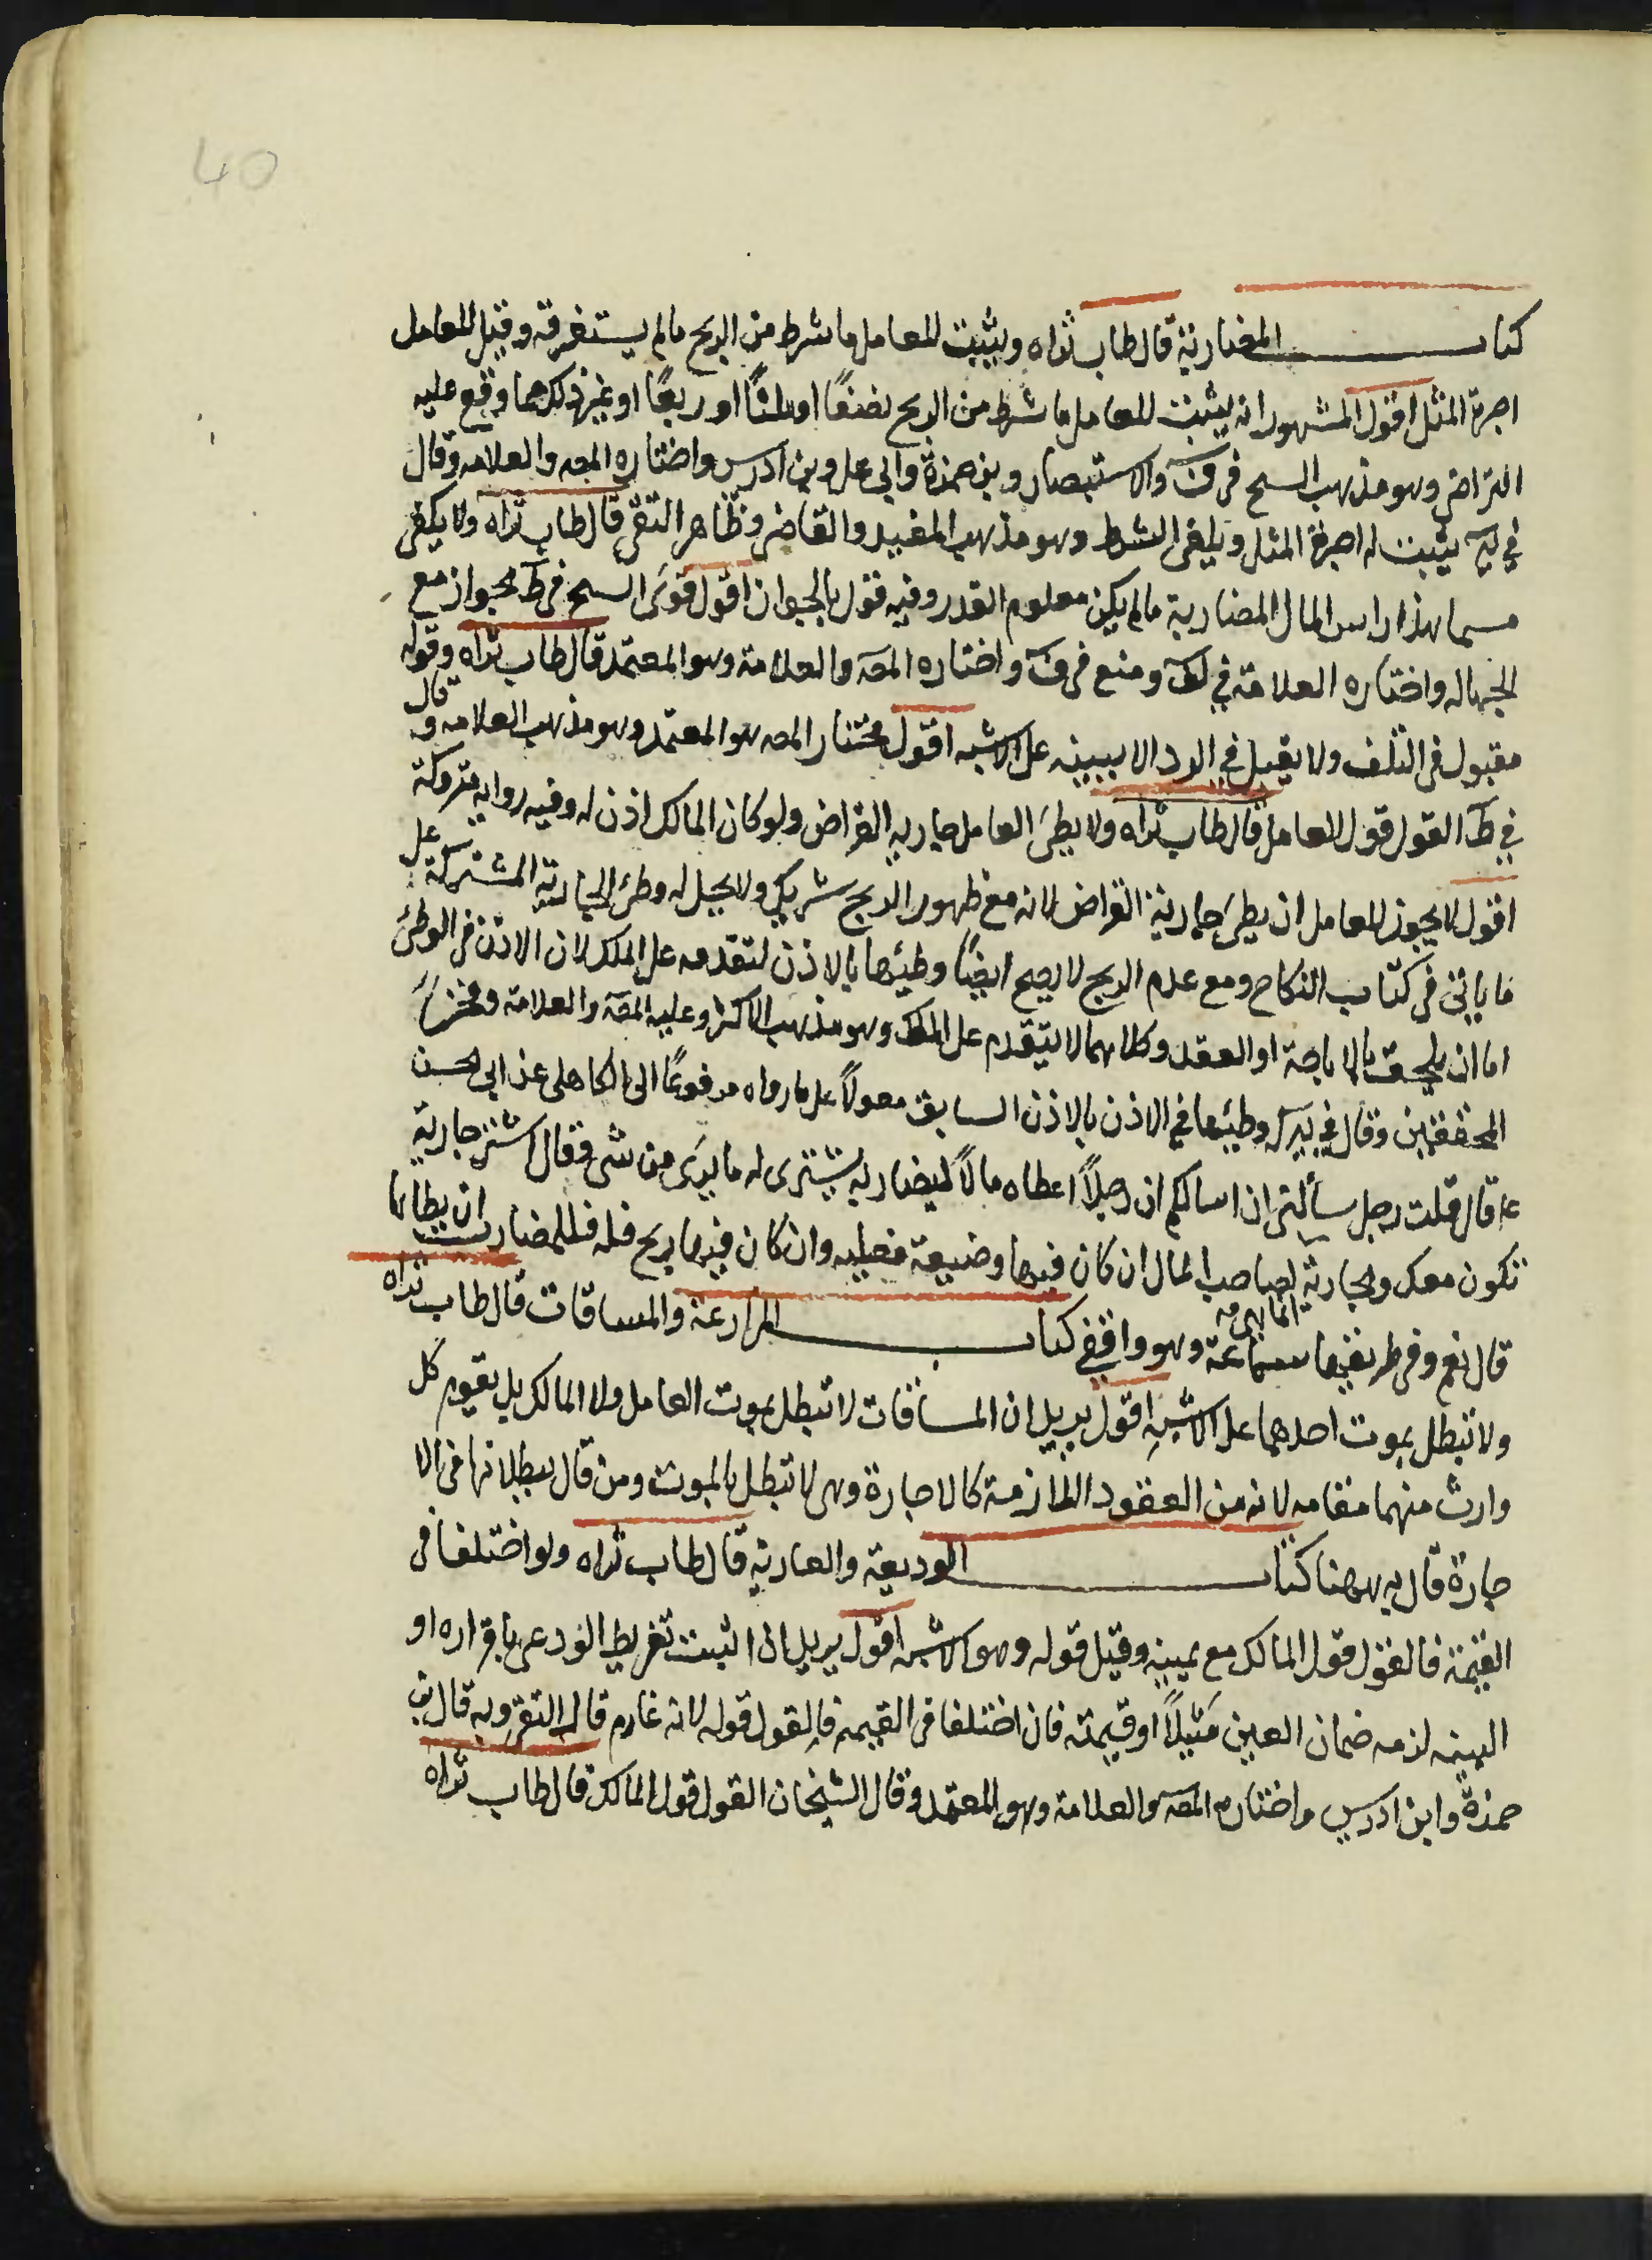 40
كتاب المضاربة قال طاب ثراه ويثبت للعامل ما شرط من الربح مالم يستغرقه وقيل للعامل
اجرة المثل اقول المشهور انه يثبت للعامل ما شرط من الربح نصفًا او ثلثًا او ربعًا او غير ذلك مما وقع عليه
التراضى وهو مذهب الشيخ فى ف والاستبصار وبن حمزة وابى على وبن ادريس واختاره المصه والعلامه وقال
في يه يثبت له اجرة المثل ويلغى الشرط وهو مذهب المفيد والقاضى وظاهر التقى قال طاب ثراه ولا يكفى
هذا راس المال المضاربة مالم يكن معلوم القدر وفيه قول بالجواز اقول قوى الشيخ فى ط الجواز مع
الجهاله واختاره العلامة في لف ومنع فى ف واختاره المصه والعلامة وهو المعتمد قال طاب ثراه وقوله
مقبول فى التلف ولا يقبل في الرد الا ببينه على الاشبه اقول مختار المصه هو المعتمد وهو مذهب العلامه وقال
في ط القول قول العامل قال طاب ثراه ولا يطئ العامل جاريه القراض ولو كان المالك اذن له وفيه روايه متروكة
اقول لا يجوز للعامل ان يطئ جارية القراض لانه مع ظهور الربح شريك ولا يحل له وطئ الجارية المشتركة على
ما ياتى فى كتاب النكاح ومع عدم الربح لا يصح ايضًا وطيئها بالاذن لتقدمه على الملك لان الاذن فى الوطئ
اما ان يلحق بالاباحة او العقد وكلاهما لا يتقدم على الملك وهو مذهب الاكثر وعليه المصه والعلامة وفخر
المحققين وقال في يه وطيئها في الاذن بالاذن السابق معولاً على ما رواه مرفوعًا الى الكاهلى عن ابى الحسن
ع قال قلت رجل سألنى ان اسالكم ان رجلاً اعطاه مالاً ليضاربه يشترى له ما يرى من شى وقال اشتر جارية
تكون معك والجارية لصاحب المال ان كان فيها وضيعة فعليه وان كان فيها ربح فله فللمضارب ان يطاها
قال نعم وفى طريقها سماعة وهو واقفى كتاب المزارعة والمساقات قال طاب ثراه
ولا تبطل بموت احدهما على الاشبه اقول يريد ان المساقات لا تبطل بموت العامل ولا المالك بل يقوم كل
وارث منهما مقامه لانه من العقود اللازمة كالاجارة وهى لا تبطل بالموت ومن قال ببطلانها فى الا
جارة قال به ههنا كتاب الوديعة والعارية قال طاب ثراه ولو اختلفا فى
القيمة فالقول قول المالك مع يمينه وقيل قوله وهو الاشبه اقول يريد اذا ثبت تفريط الودعى باقراره او
البينه لزمه ضمان العين مثلاً او قيمته فان اختلفا فى القيمه فالقول قوله لانه غارم قال التقى وبه قال بن
حمزة وابن ادريس واختاره المصه والعلامة وهو المعتمد وقال الشيخان القول قول المالك قال طاب ثراه